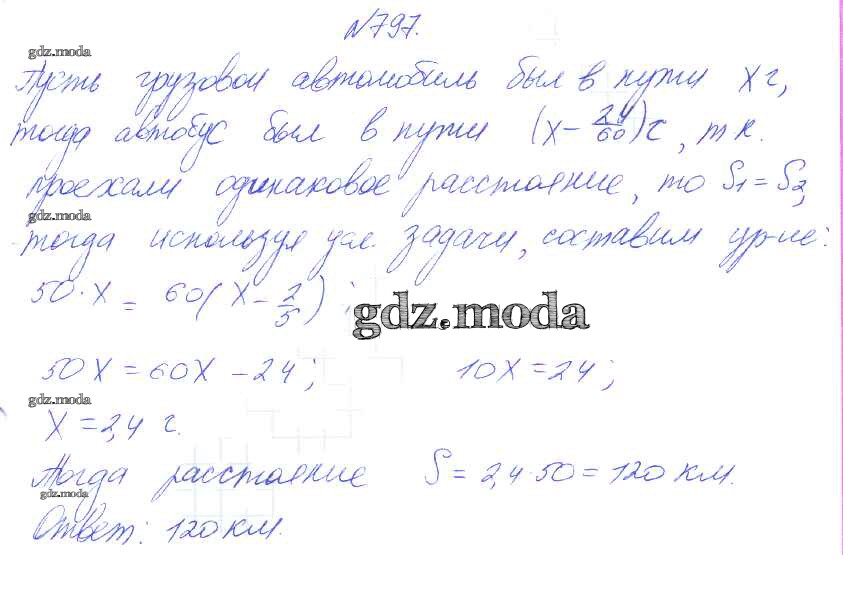 №797.
gdz.moda
Пусть грузовой автомобиль был в пути x г,
тогда автобус был в пути (x - 24/60) г, т к.
проехали одинаковое расстояние, то S₁ = S₂,
gdz.moda
тогда используя усл. задачи, составим ур-ие:
50 · x = 60(x - 2/5);
gdz.moda
50x = 60x - 24; 10x = 24;
gdz.moda
x = 2,4 г.
Тогда расстояние S = 2,4 · 50 = 120 км.
gdz.moda
Ответ: 120 км.